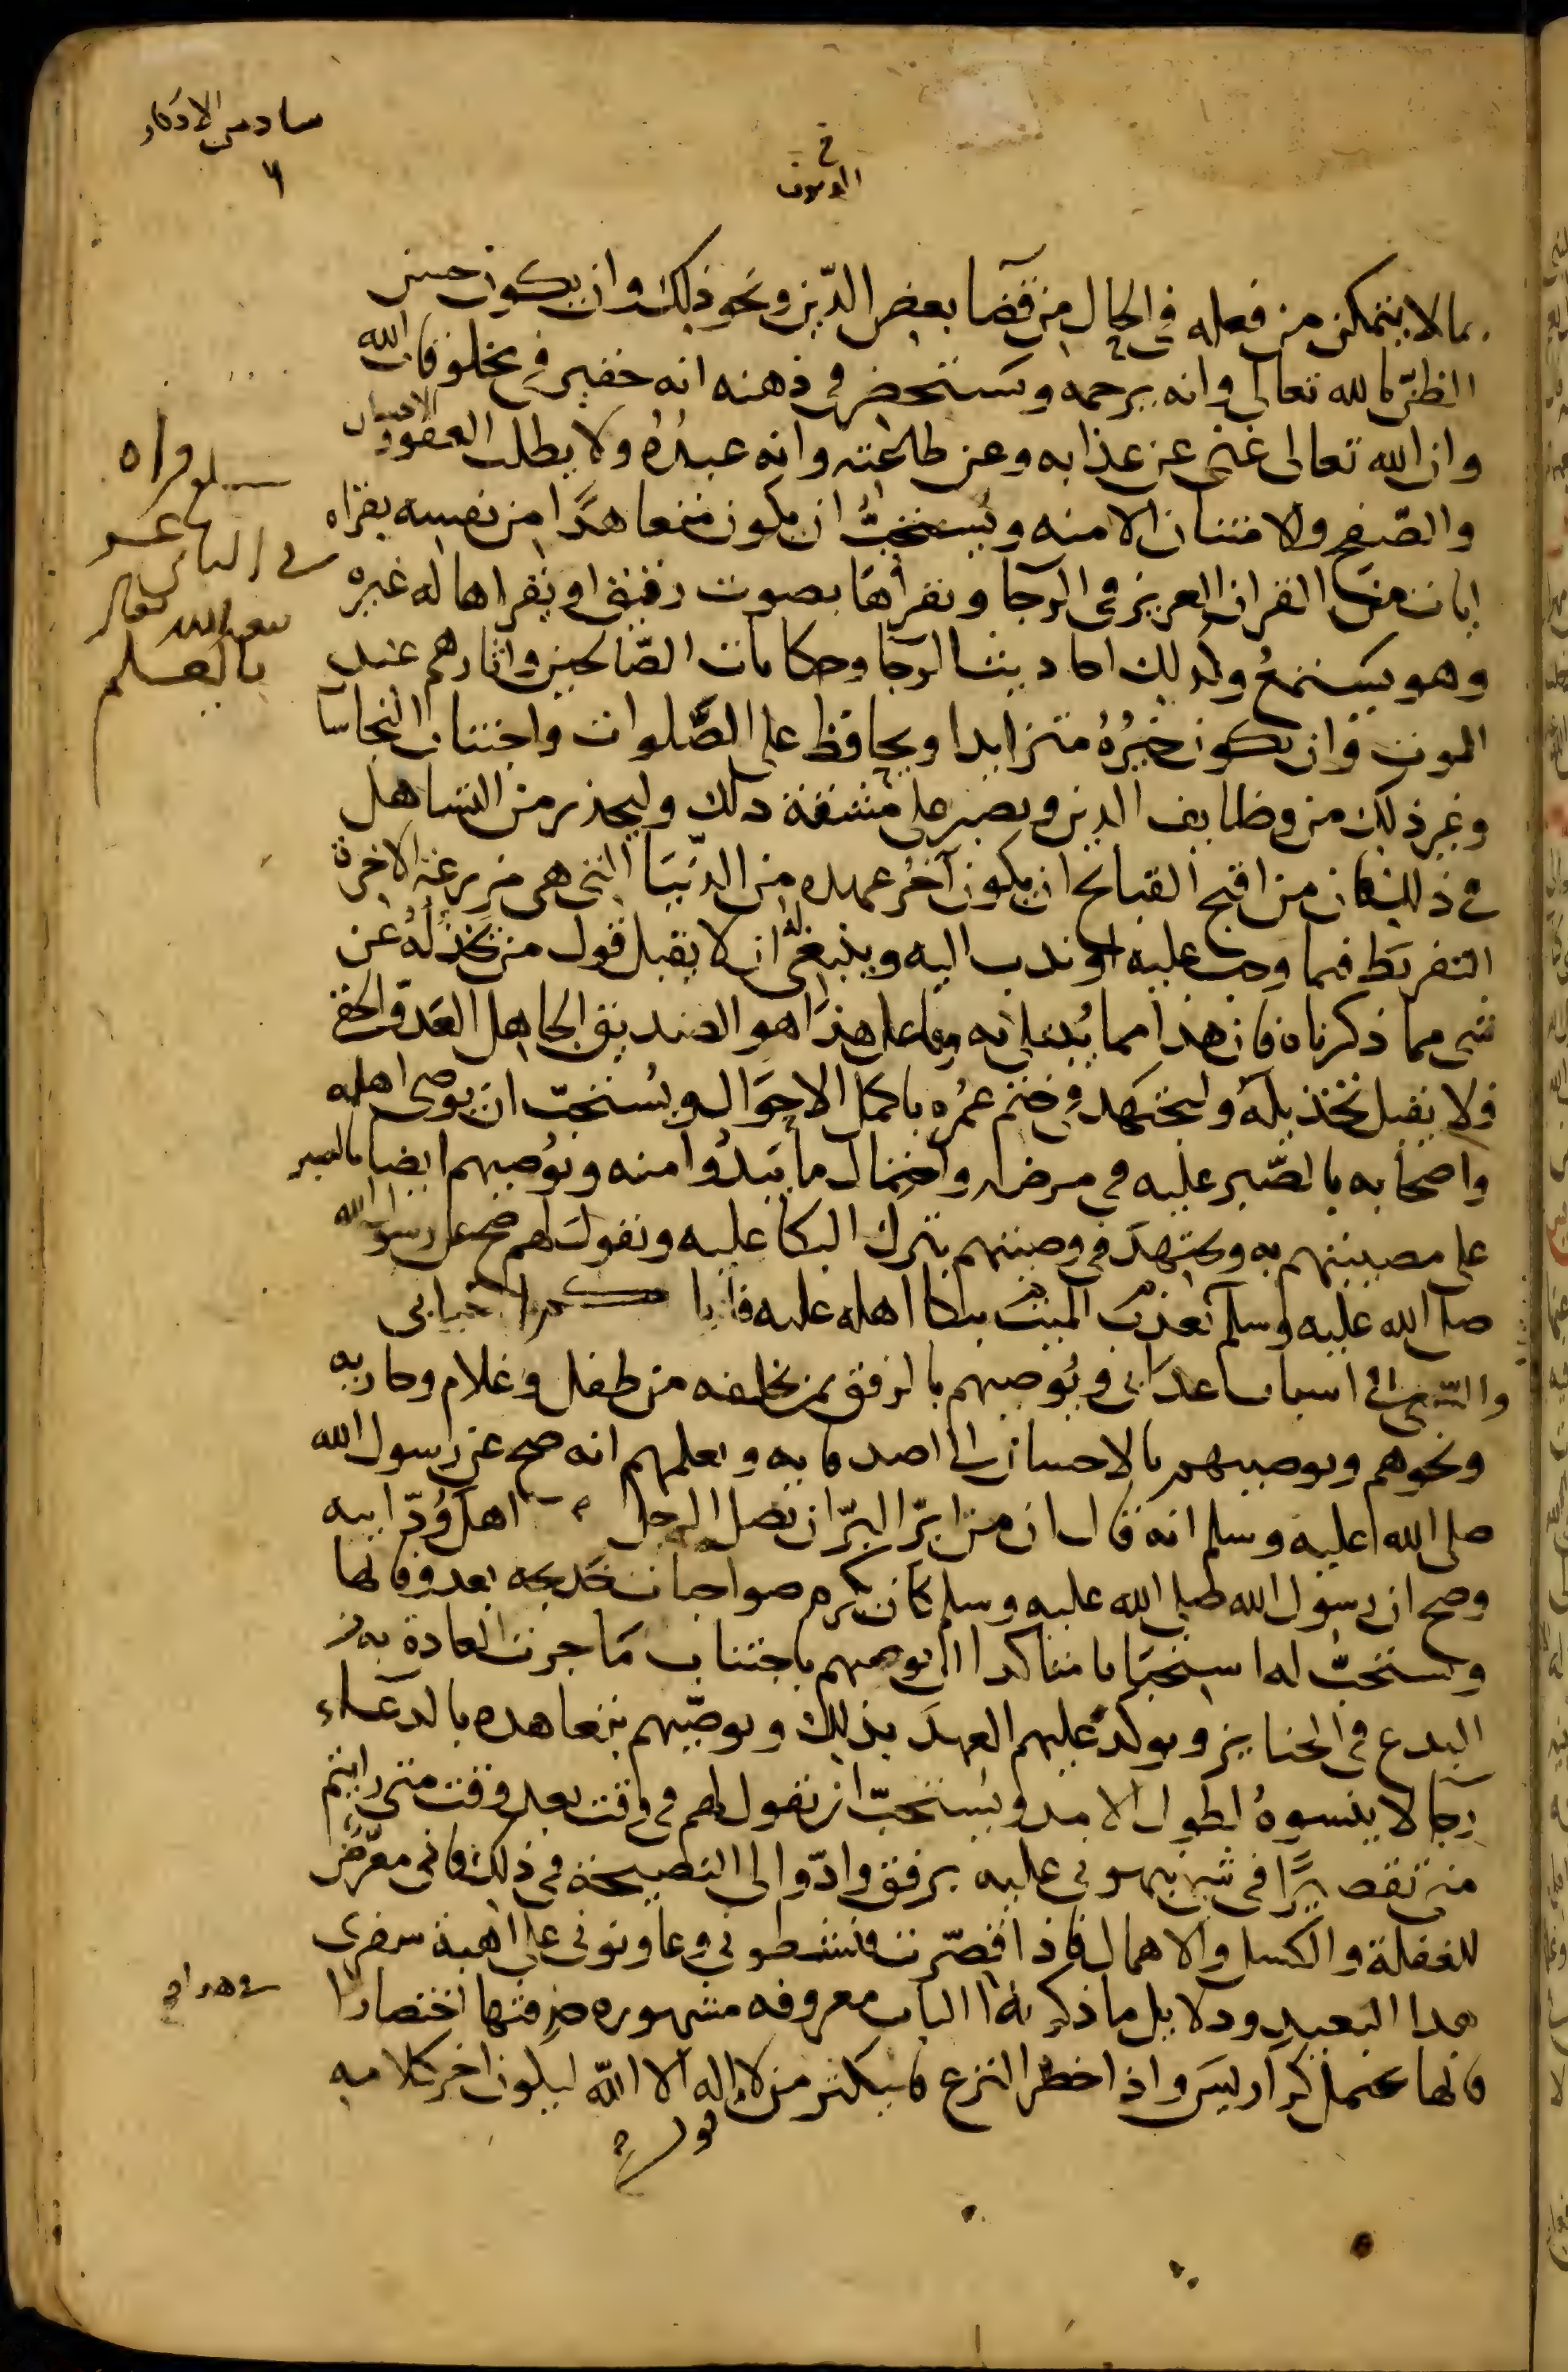 سادس الاذكار
٦
في
الموت
بما لا يتمكن من فعله في الحال من قضا بعض الدين ونحو ذلك وان يكون حسن
الظن بالله تعالى وانه يرحمه ويستحضر في ذهنه انه حقير في مخلوقات الله
وان الله تعالى غني عن عذابه وعن طاعته وانه عبده ولا يطلب العفو والاحسان
والصفح والامتنان الا منه ويستحب ان يكون متعاهدا من نفسه بقراه
ايات من القران العزيز في الرجا ويقراها بصوت رقيق او يقراها له غيره
وهو يستمع وكذلك احاديث الرجا وحكايات الصالحين واثارهم عند
الموت وان يكون خيره متزايدا ويحافظ على الصلوات واجتناب النجاسات
وغير ذلك من وظايف الدين ويصبر على مشقة ذلك وليحذر من التساهل
في ذلك فان من اقبح القبائح ان يكون آخر عهده من الدنيا التي هي مزرعة الاخرة
التفريط فيما وجب عليه او ندب اليه وينبغي له ان لا يقبل قول من يخذله عن
شي مما ذكرناه فان هذا مما يبتلى به وفاعل هذا هو الصديق الجاهل العدو الخفي
فلا يقبل تخذيله وليجتهد في ختم عمره باكمل الاحوال ويستحب ان يوصي اهله
واصحابه بالصبر عليه في مرضه واحتمال ما يبدوا منه ويوصيهم ايضا بالصبر
على مصيبتهم به ويجتهد في وصيتهم بترك البكا عليه ويقول لهم صح عن رسول الله
صلى الله عليه وسلم يعذب الميت ببكا اهله عليه فايا كم يا احبابي
والسعي في اسباب عذابي ويوصيهم بالرفق بمن يخلفه من طفل وغلام وجاريه
ونحوهم ويوصيهم بالاحسان الى اصدقايه ويعلمهم انه صح عن رسول الله
صلى الله عليه وسلم انه قال ان من ابر البر ان يصل الرجل اهل ود ابيه
وصح ان رسول الله صلى الله عليه وسلم كان يكرم صواحبات خديجه بعد وفاتها
ويستحب له استحبابا متاكدا ان يوصيهم باجتناب ما جرت العادة به من
البدع في الجنايز ويوكد عليهم العهد بذلك ويوصيهم بتعاهده بالدعاء
وان لا ينسوه لطول الامد ويستحب ان يقول لهم في وقت بعد وقت متى رايتم
مني تقصيرا في شي نبهوني عليه برفق وادوا الي النصيحة في ذلك فاني معرض
للغفلة والكسل والاهمال فاذا قصرت فنشطوني وعاونوني على اهبة سفري
هذا البعيد ودلايل ما ذكر في هذا الباب معروفه مشهوره حذفتها اختصارا
فانها تحتمل كراريس واذا حضر النزع فليكثر من لا اله الا الله ليكون اخر كلامه